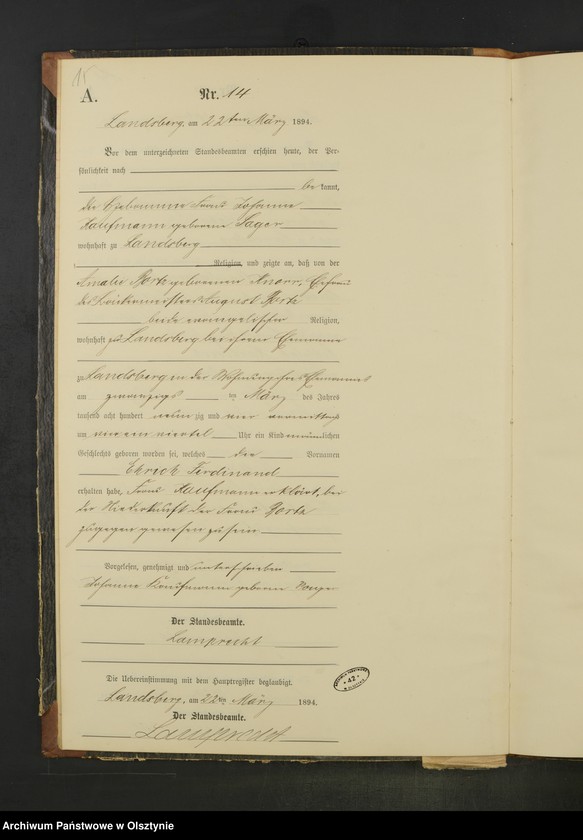 15
A.
Nr. 14
Landsberg, am 22ten März 1894.
Vor dem unterzeichneten Standesbeamten erschien heute, der Per-
sönlichkeit nach
be kannt,
die Hebamme Frau Johanne
Kaufmann geborene Sager
wohnhaft zu Landsberg
Religion, und zeigte an, daß von der
Amalie geborenen Knorr, Ehefrau
des August
beide evangelischer Religion,
wohnhaft zu Landsberg bei ihrem Ehemanne
zu Landsberg in der Wohnung ihres Ehemannes
am zwanzigs ten März des Jahres
tausend acht hundert neun zig und vier vormittags
um ein viertel Uhr ein Kind männlichen
Geschlechts geboren worden sei, welches die Vornamen
Ehrich Ferdinand
erhalten habe. Frau Kaufmann erklärt, bei
der Niederkunft der Frau
zugegen gewesen zu sein
Vorgelesen, genehmigt und unterschrieben
Johanne Kaufmann geborne
Der Standesbeamte.
Lamprecht
Die Uebereinstimmung mit dem Hauptregister beglaubigt.
Landsberg, am 22ten März 1894.
Der Standesbeamte.
Lamprecht
* 42 *
Archiwum Państwowe w Olsztynie